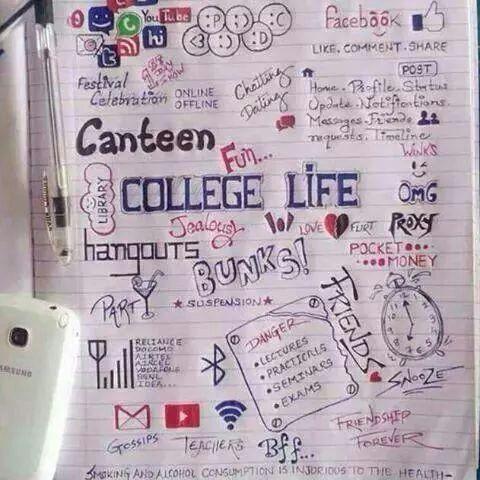 YouTube
hi
:P :) :C
<3 :) :D
facebook
LIKE. COMMENT. SHARE
POST
Home. Profile. Status
Update. Notifications.
Messages. Friends
requests. Timeline
Festival
Celebration
ONLINE
OFFLINE
Chatting
Dating
Canteen
Fun...
WINKS
LIBRARY
COLLEGE LIFE
OMG
Jealousy
LOVE
FLIRT
PROXY
hangouts
BUNKS!
POCKET
MONEY
PARTY
SUSPENSION
FRIENDS
DANGER
LECTURES
PRACTICALS
SEMINARS
EXAMS
RELIANCE
DOCOMO
AIRTEL
AIRCEL
VODAFONE
BSNL
IDEA...
SAMSUNG
SNOOZE
GOSSIPS
TEACHERS
Bff...
FRIENDSHIP
FOREVER
SMOKING AND ALCOHOL CONSUMPTION IS INJURIOUS TO THE HEALTH-